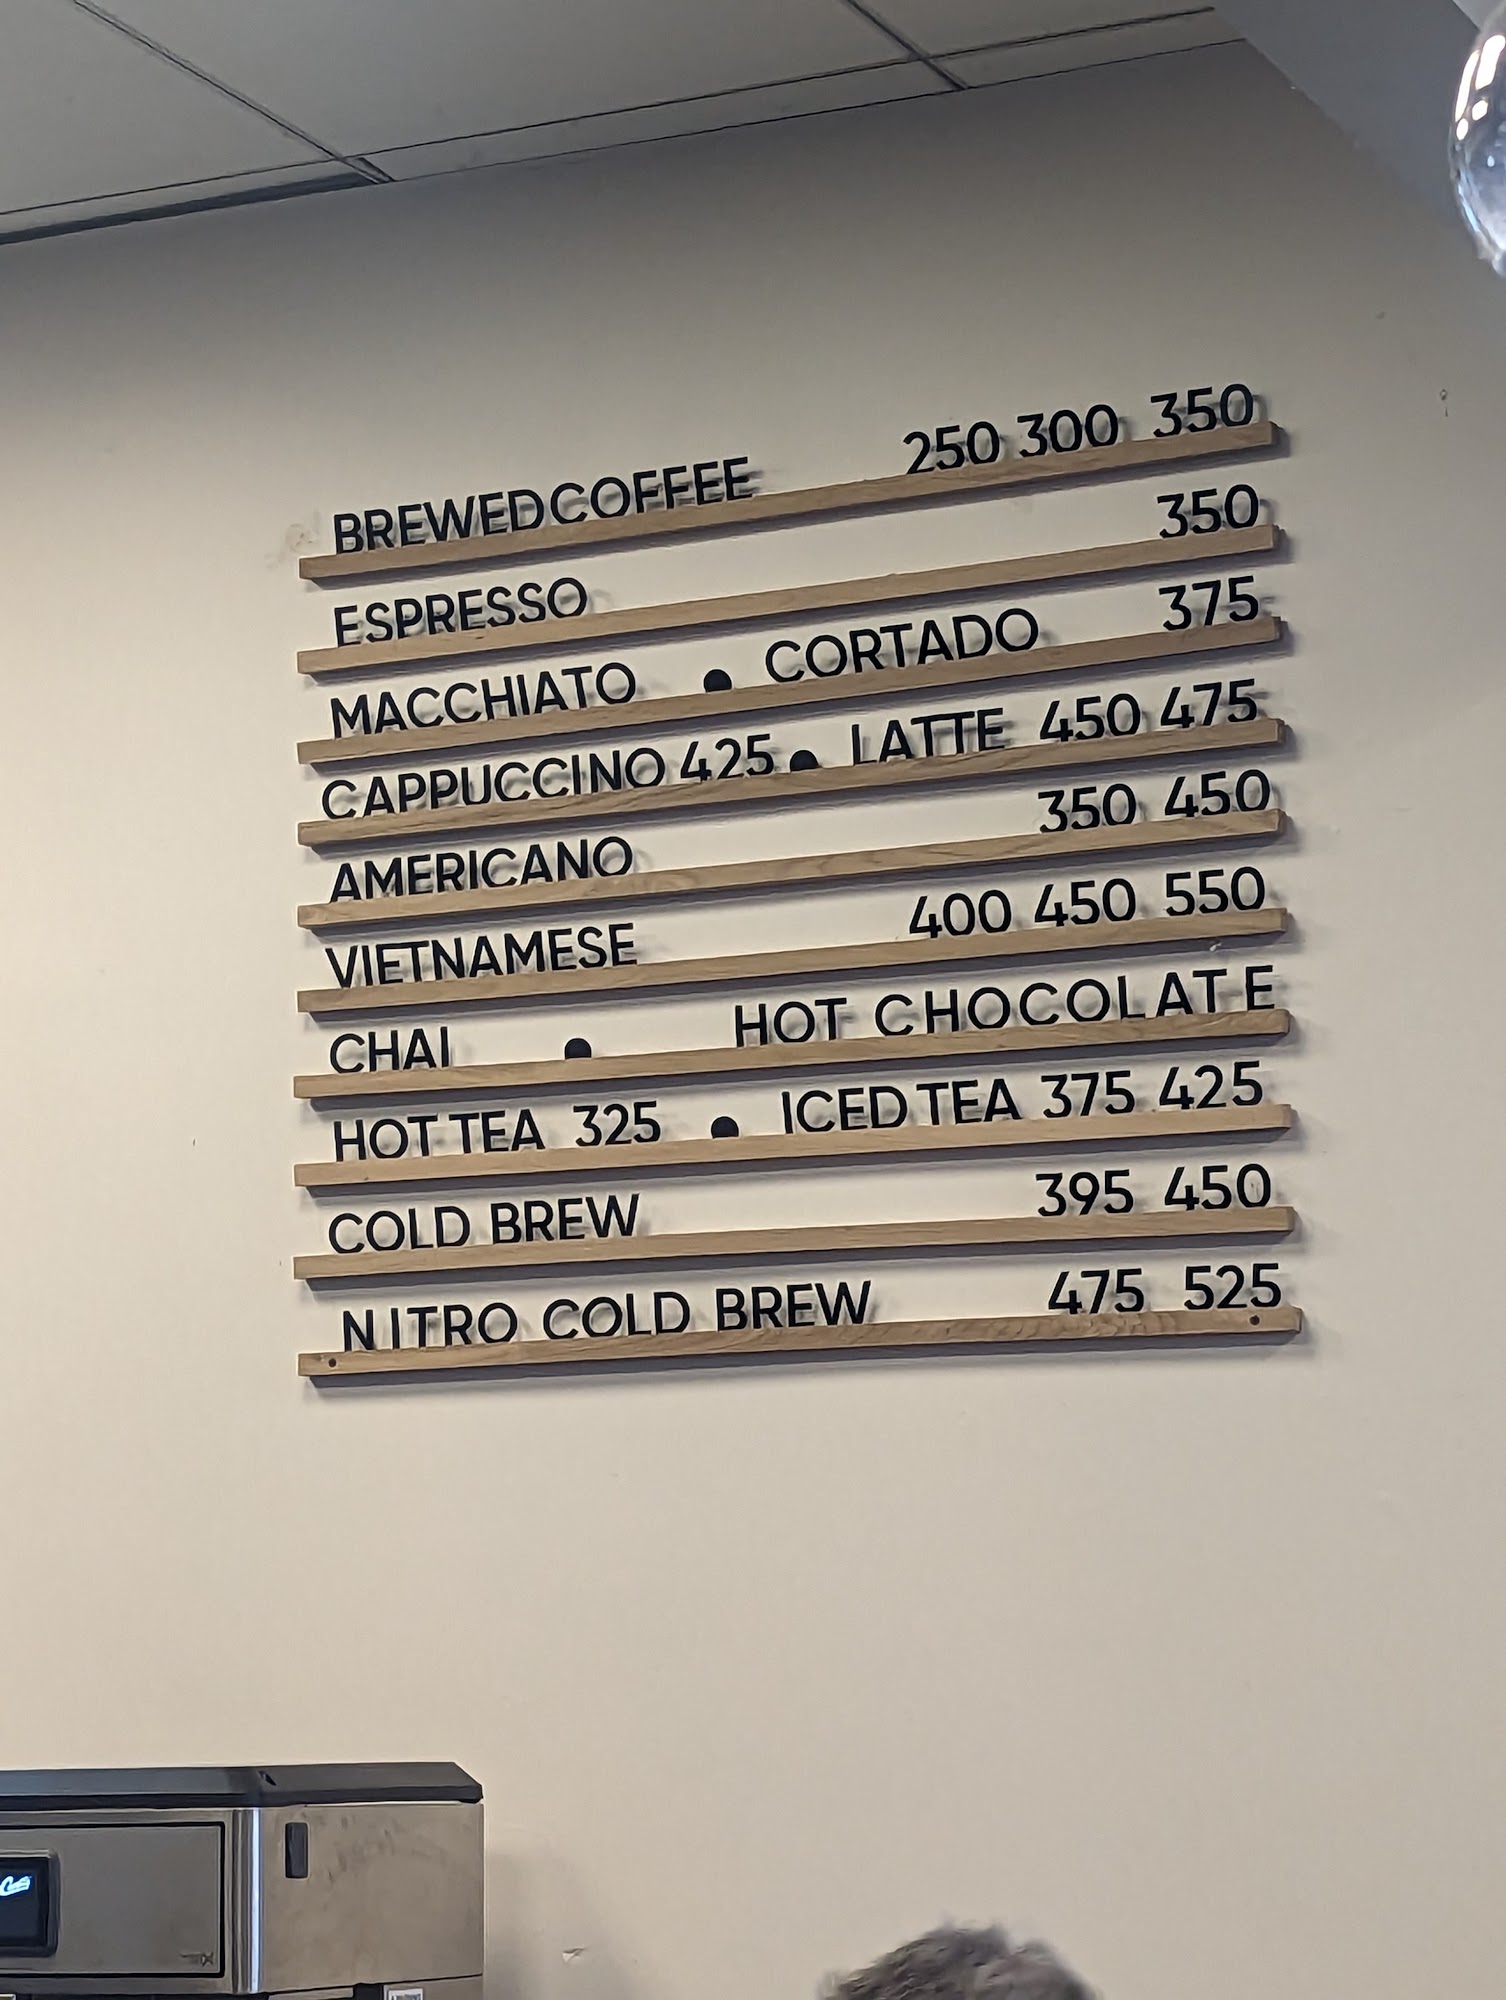 BREWED COFFEE 250 300 350
ESPRESSO 350
MACCHIATO • CORTADO 375
CAPPUCCINO 425 • LATTE 450 475
AMERICANO 350 450
VIETNAMESE 400 450 550
CHAI • HOT CHOCOLATE
HOT TEA 325 • ICED TEA 375 425
COLD BREW 395 450
NITRO COLD BREW 475 525